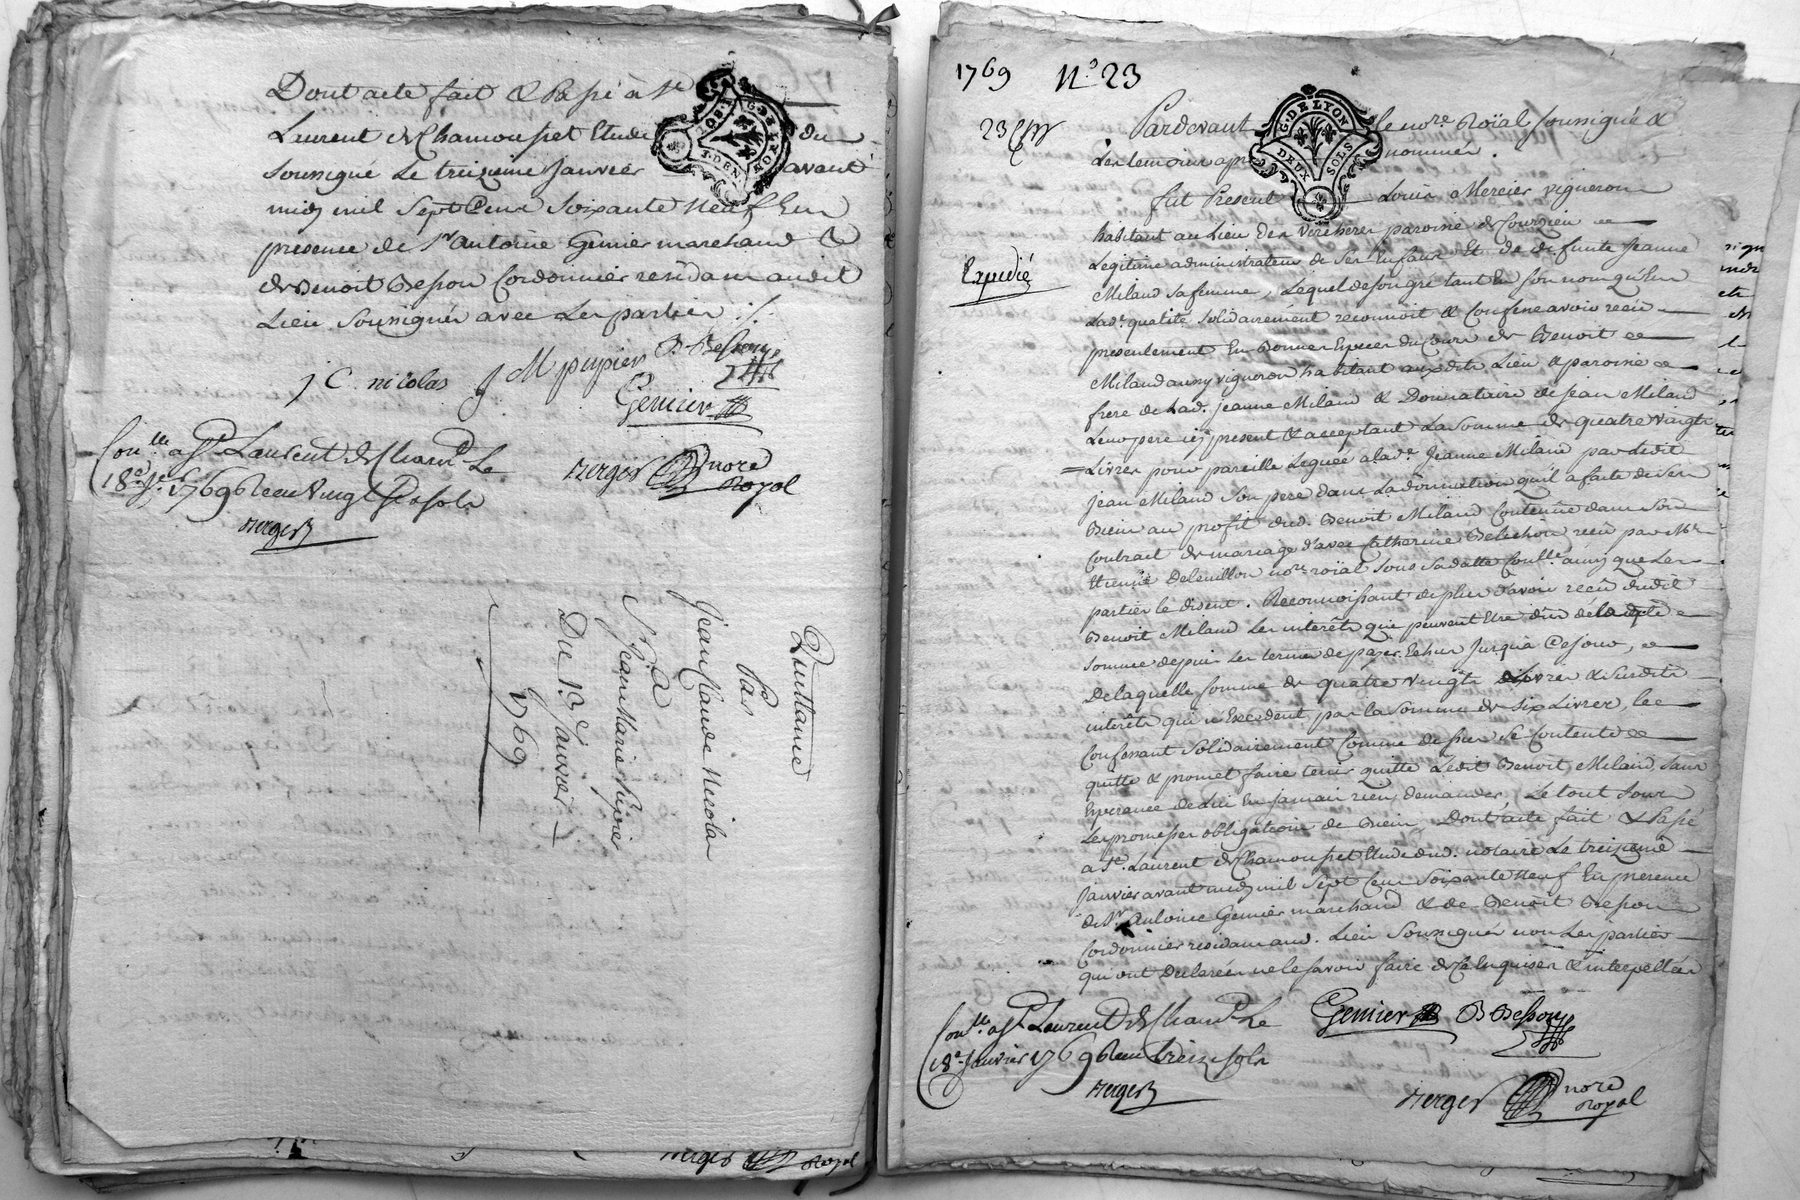 Dont acte fait & Passé à St
Laurent de Chamousset Etude du
soussigné Le treizieme Janvier avant
midy mil Sept Cent Soixante neuf En
presence de Sr antoine Genier marchand &
de Benoit Besson Cordonnier residam audit
Lieu Soussignés avec Les parties ./.
J C nicolas J M pupier B Besson
Genier
Con.lle a St Laurent de Cham.t Le
18e Jer 1769 Receu Vingt Six sols
Berger
Berger nore
Royal
Quittance
Par
Jean Claude Nicolas
a
Sr Jean Marie Pupier
Du 13e Janvier
1769
G. DE LYON
1769 No 23
23
Expedié
G. DE LYON
DEUX SOLS
Pardevant le nore Roïal soussigné &
Les temoins apres nommés.
fut Present Louis Mercier vigneron
habitant au Lieu des Verchere paroisse de Courzieu
Legitime administrateur de ses Enfans Et de defunte Jeanne
Miland sa femme, Lequel de son gre tant En son nom qu'En
Lad. qualité solidairement reconnoit & Confesse avoir recu
presentement En Bonnes Especes du Cours de Benoit
Miland aussy vigneron habitant auxdits Lieu & paroisse
frere de Lad. Jeanne Miland & Donnataire de Jean Miland
Leur pere icy present & acceptant La somme de quatre vingts
Livres pour pareille Leguée a lade Jeanne Miland par Ledit
Jean Miland son pere dans La donnation qu'il a faite de ses
Biens au profit dud. Benoit Miland Contenüe dans son
Contrait de mariage d'avec Catherine recu par Me
Etienne Deleuillon nore roïal sous sa datte Con.lle ainsy que Les
parties le disent. Reconnoissant de plus avoir recu dudit
Benoit Miland Les interêts qui peuvent Etre dus de la dte
somme depuis Les termes de payes Echus Jusqu'à Ce jour,
De laquelle somme de quatre vingts Livres & susdits
interêts qui n'Excedent pas la somme de six Livres, le
Confessant solidairement Comme dessus se Contente
quitte & promet faire tenir quitte Ledit Benoit Miland, sans
Esperance de Lui En jamais rien demander, Le tout sous
Les promesses obligations de Biens, Dont acte fait & Passé
a St Laurent de Chamousset Etude dud. notaire Le treizieme
Janvier avant midy mil Sept Cent Soixante neuf En presence
de Sr Antoine Genier marchand & de Benoit Besson
Cordonnier residam aud. Lieu Soussignés non Les parties
qui ont Declarées ne le savoir faire de Ce Enquises & interpellées
Genier B Besson
Con.lle a St Laurent de Cham.t Le
18e Janvier 1769 Receu treize sols
Berger
Berger nore
Royal
Berger Royal